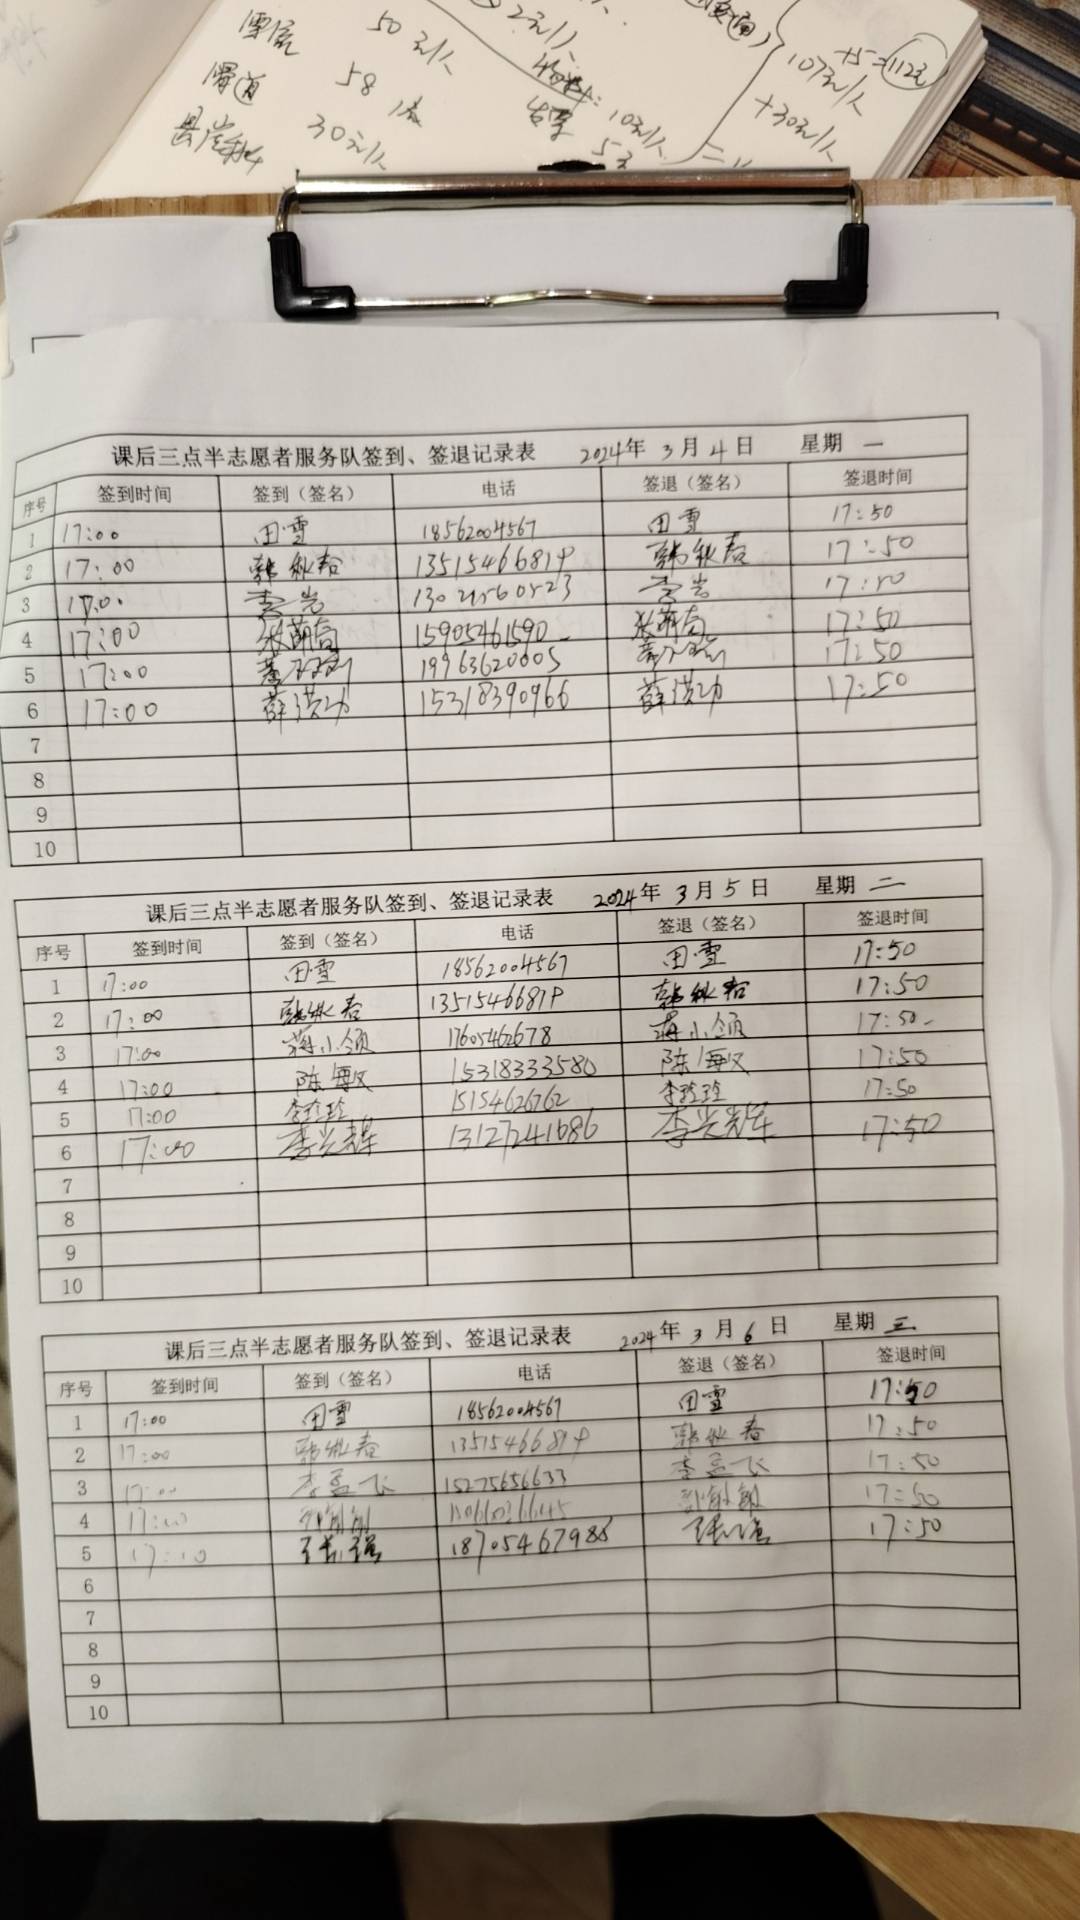 50元/人
2元/人
+5=112元
滑道
58
107元/人
10元/人
+30元/人
30元/人
5元
课后三点半志愿者服务队签到、签退记录表 2024年 3月 4日 星期 一
序号 签到时间 签到（签名） 电话 签退（签名） 签退时间
1 17:00 田雪 18562004567 田雪 17:50
2 17:00 韩秋春 13515466819 韩秋春 17:50
3 17:00 李岩 李岩
4 17:00 15905461590 17:50
5 17:00 19963620005 17:50
6 17:00 薛洪功 15318390966 薛洪功 17:50
7
8
9
10
课后三点半志愿者服务队签到、签退记录表 2024年 3月 5日 星期 二
序号 签到时间 签到（签名） 电话 签退（签名） 签退时间
1 17:00 田雪 18562004567 田雪 17:50
2 17:00 韩秋春 13515466819 韩秋春 17:50
3 17:00 蒋小领 17605462678 蒋小领 17:50
4 17:00 陈海汉 15318333580 陈海汉 17:50
5 17:00 李玲玲 15154626762 李玲玲 17:50
6 17:00 李兴 13127241686 李兴 17:50
7
8
9
10
课后三点半志愿者服务队签到、签退记录表 2024年 3月 6日 星期 三
序号 签到时间 签到（签名） 电话 签退（签名） 签退时间
1 17:00 田雪 18562004567 田雪 17:50
2 17:00 韩秋春 13515466819 韩秋春 17:50
3 17:00 李孟飞 15275656633 李孟飞 17:50
4 17:00 17:50
5 17:10 18705467988 17:50
6
7
8
9
10